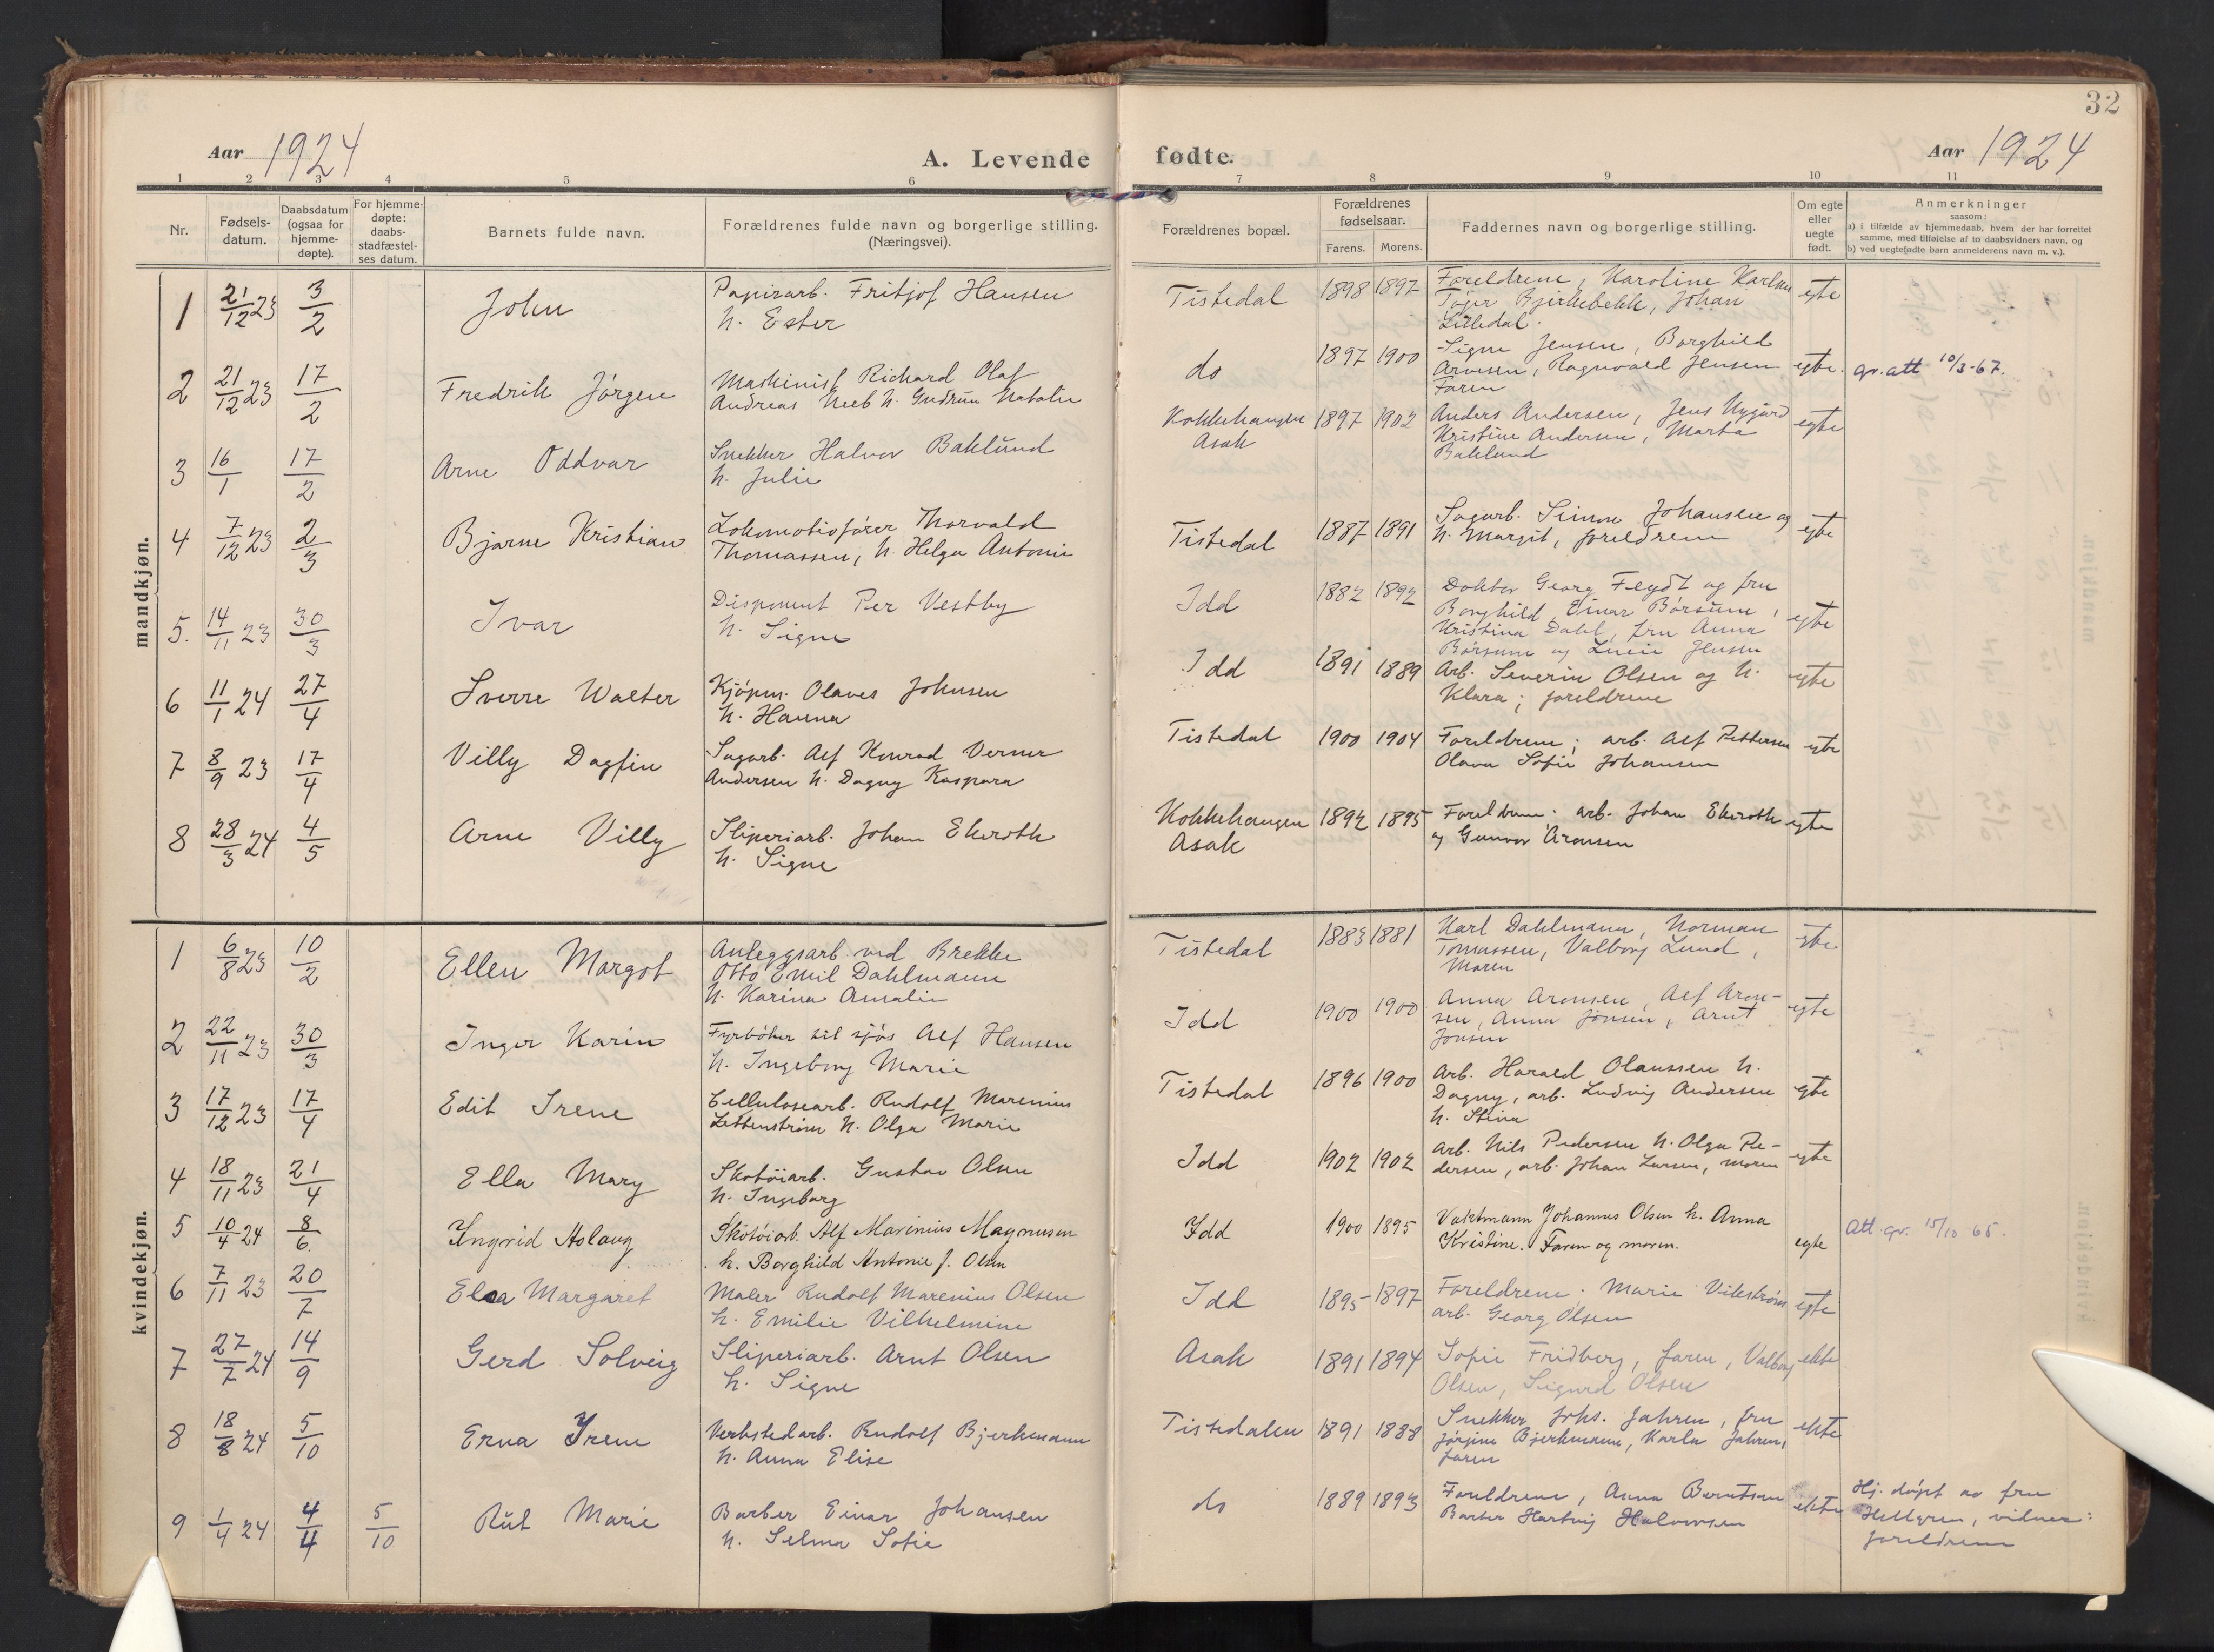 32
Aar 1924
A. Levende fødte.
Aar 1924
1 2 3 4 5 6 7 8 9 10 11
Nr.
Fødsels-
datum.
Daabsdatum
(ogsaa for
hjemme-
døpte).
For hjemme-
døpte:
daabs-
stadfæstel-
ses datum.
Barnets fulde navn.
Forældrenes fulde navn og borgerlige stilling.
(Næringsvei).
Forældrenes bopæl.
Forældrenes
fødselsaar.
Farens. Morens.
Faddernes navn og borgerlige stilling.
Om egte
eller
uegte
født.
Anmerkninger
saasom:
a) i tilfælde av hjemmedaab, hvem der har forrettet
samme, med tilføielse af to daabsvidners navn, og
b) ved uegtefødte barn anmelderens navn m. v.).
mandkjøn.
1 21/12 23 3/2 John
Papirarb. Fritjof Hansen
h. Ester
Tistedal 1898 1897
Foreldrene, Karoline Karlsen
Bjerkebekk, Johan
Lilledal.
egte
2 21/12 23 17/2 Fredrik Jörgen
Maskinist Richard Olaf
Andreas Neeb h. Gudrun Natalie
do 1897 1900
Signe Jensen, Borghild
Arvesen, Ragnvald Jensen
Faren
egte. gr. att 10/3-67.
3 16/1 17/2 Arne Oddvar
Snekker Halvor Baklund
h. Julie
Kokkehaugen
Asak
1897 1902
Anders Andersen, Jens Nygård
Kristine Andersen, Marta
Baklund
egte
4 7/12 23 2/3 Bjarne Kristian
Lokomotivförer Thorvald
Thomassen, h. Helga Antonie
Tistedal 1887 1891
Sagarb. Simon Johansen og
h. Margit, foreldrene
egte
5. 14/11 23 30/3 Ivar
Disponent Per Vestby
h. Signe
Idd 1882 1892
Doktor Georg Flydt og fru
Borghild, Einar Börsum,
Kristina Dahl, fru Anna
Börsum og Lucie Jensen
egte
6 11/1 24 27/4 Sverre Walter
Kjöpm. Olaves Johnsen
h. Hanna
Idd 1891 1889
Arb. Severin Olsen og h.
Klara; foreldrene
egte
7 8/9 23 17/4 Villy Dagfin
Sagarb. Alf Konrad Verner
Andersen h. Dagny Kaspara
Tistedal 1900 1904
Foreldrene; arb. Alf Pettersen
Olava Sofie Johansen
egte
8 28/3 24 4/5 Arne Villy
Sliperiarb. Johan Ekeroth
h. Signe
Kokkehaugen
Asak
1892 1895
Foreldrene. arb. Johan Ekeroth
og Gunvor Aronsen
egte
kvindekjøn.
1 6/8 23 10/2 Ellen Margot
Anleggsarb. ved Brekke
Otto Emil Dahlmann
h. Karina Amalie
Tistedal 1883 1881
Karl Dahlmann, Norman
Tomassen, Valborg Lund,
Moren
egte
2 22/11 23 30/3 Inger Karin
Fyrböter til sjös Alf Hansen
h. Ingeborg Marie
Idd 1900 1900
Anna Aronsen, Alf Aron-
sen, Anna Jonsen, Arnt
Jonsen
egte
3 17/12 23 17/4 Edit Irene
Cellulosearb. Rudolf Marenius
Zettenström h. Olga Marie
Tistedal 1896 1900
Arb. Harald Olaussen h.
Dagny, arb. Ludvig Andersen
h. Stina
egte
4 18/11 23 21/4 Ella Mary
Skotöiarb. Gustav Olsen
h. Ingeborg
Idd 1902 1902
arb. Nils Pedersen h. Olga Pe-
dersen, arb. Johan Larsen, moren
egte
5 10/4 24 8/6. Yngvid Aslaug
Skotöiarb. Alf Marinius Magnusen
h. Borghild Antonie f. Olsen
Idd 1900 1895
Vaktmann Johannes Olsen h. Anna
Kristine. Faren og moren.
egte Att. gr. 15/10 65.
6 7/11 23 20/7 Elsa Margaret
Maler Rudolf Marenius Olsen
h. Emilie Vilhelmine
Idd 1895 1897
Foreldrene. Marie Vikström
arb. Georg Olsen
egte
7 27/7 24 14/9 Gerd Solveig
Sliperiarb. Arnt Olsen
h. Signe
Asak 1891 1894
Sofie Fridberg, faren, Valborg
Olsen, Sigurd Olsen
ekte
8 18/8 24 5/10 Erna Irene
Verkstedarb. Rudolf Bjerkmann
h. Anna Elise
Tistedalen 1891 1888
Snekker Johs. Jahren, fru
Jörgine Bjerkmann, Karla Jahren,
faren
ekte
9 1/4 24 4/4 5/10 Rut Marie
Barber Einar Johansen
h. Selma Sofie
do 1889 1893
Foreldrene, Anna Berntsen
Barber Hartvig Halvorsen
ekte
Hj. döpt av fru
Hellgren, vidner:
foreldrene